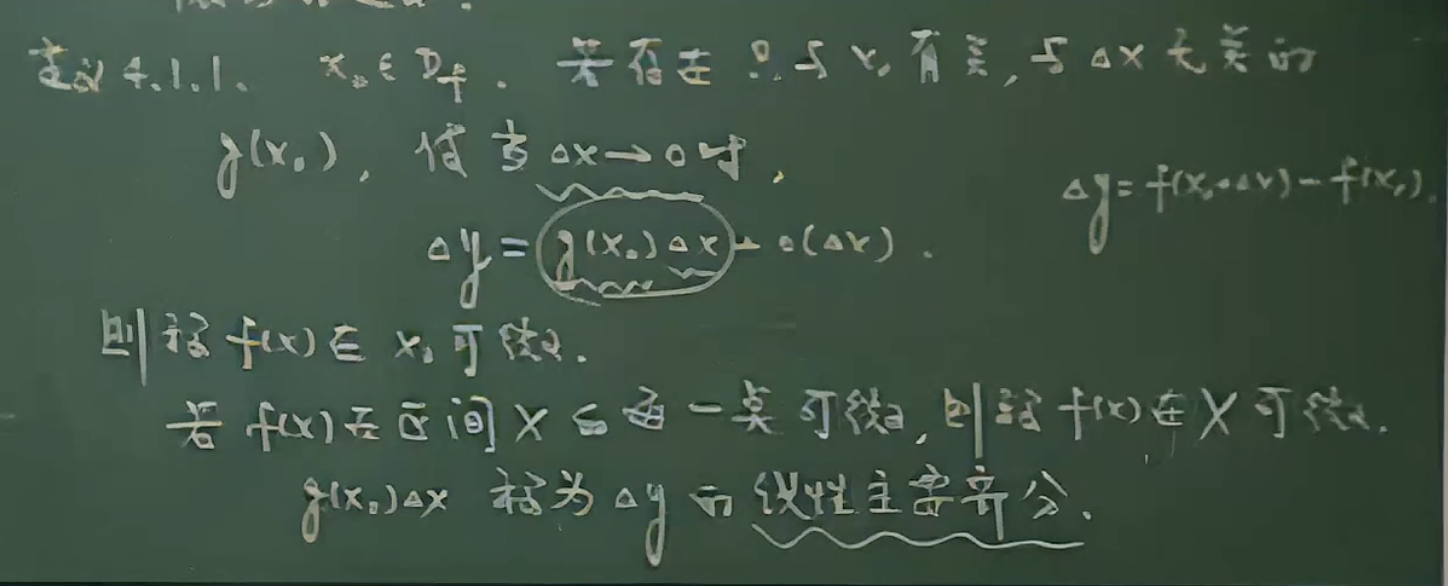 定义4.1.1. x₀∈D_f. 若存在只与x₀有关,与Δx无关的
g(x₀), 使当Δx→0时,
Δy=f(x₀+Δx)-f(x₀).
Δy=g(x₀)Δx+o(Δx).
则称f(x)在x₀可微.
若f(x)在区间X上每一点可微,则称f(x)在X可微.
g(x₀)Δx称为Δy的线性主要部分.